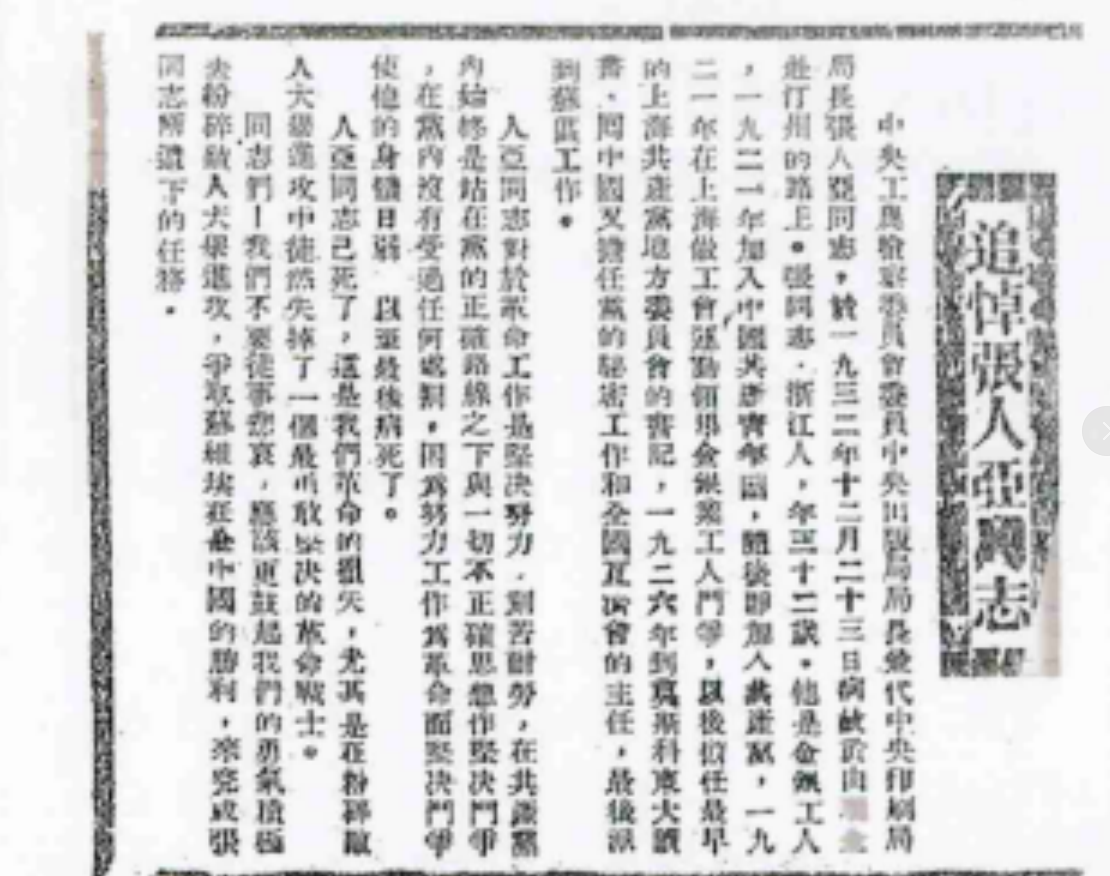 追悼張人亞同志
中央工農檢察委員會委員中央出版局局長兼代中央印刷局
局長張人亞同志，於一九三二年十二月二十三日病故於由瑞金
赴汀州的路上。張同志，浙江人，年三十二歲。他是金銀工人
，一九二一年加入中國共產青年團，隨後即加入共產黨，一九
二一年在上海做工會運動領導金銀業工人鬥爭，以後担任最早
的上海共產黨地方委員會的書記，一九二六年到莫斯科東大讀
書，回中國又擔任黨的秘密工作和全國互濟會的主任，最後派
到蘇區工作。
人亞同志對於革命工作是堅决努力，刻苦耐勞，在共產黨
內始終是站在黨的正確路線之下與一切不正確思想作堅决鬥爭
，在黨內沒有受過任何處罰，因爲努力工作爲革命而堅决鬥爭
使他的身體日弱 以至最後病死了。
人亞同志已死了，這是我們革命的損失，尤其是在粉碎敵
人大舉進攻中徒然失掉了一個最勇敢堅决的革命戰士。
同志們！我們不要徒事悲哀，應該更鼓起我們的勇氣積極
去粉碎敵人大舉進攻，爭取蘇維埃在全中國的勝利，來完成張
同志所遺下的任務。